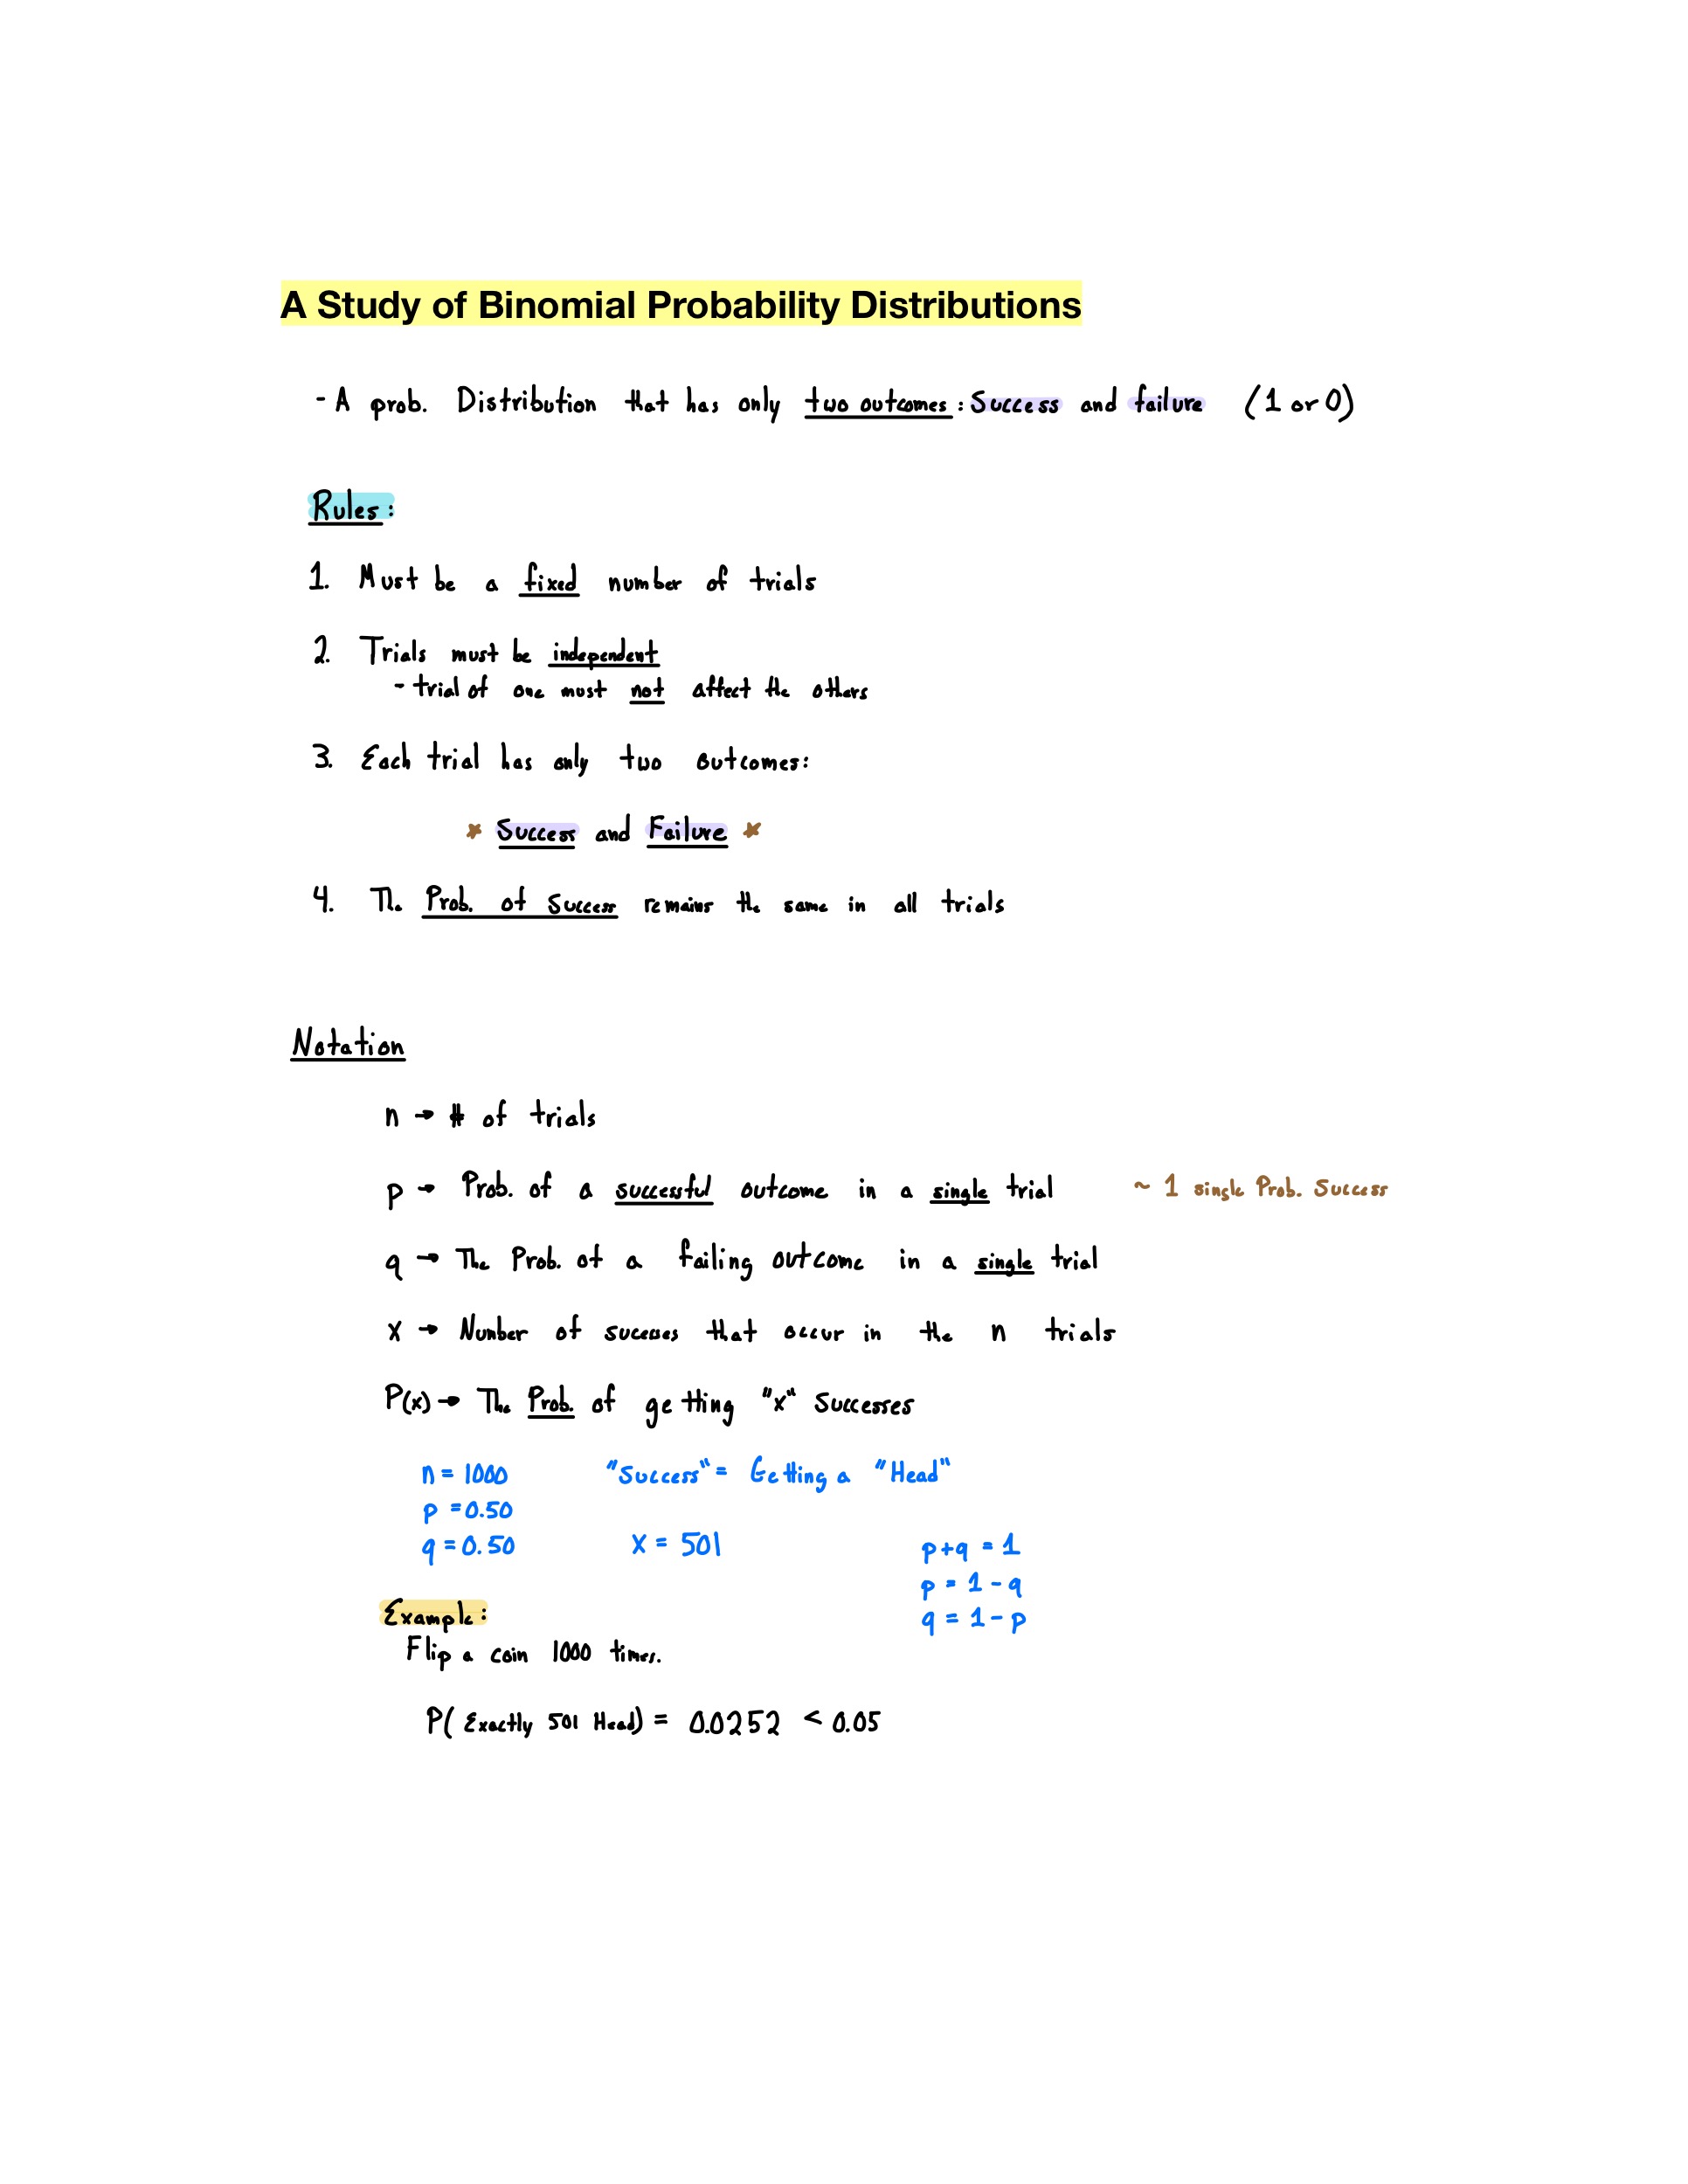 A Study of Binomial Probability Distributions
- A prob. Distribution that has only two outcomes: Success and failure (1 or 0)
Rules:
1. Must be a fixed number of trials
2. Trials must be independent
- trial of one must not affect the others
3. Each trial has only two outcomes:
* Success and Failure *
4. The Prob. of Success remains the same in all trials
Notation
n → # of trials
p → Prob. of a successful outcome in a single trial ~ 1 single Prob. Success
q → The Prob. of a failing outcome in a single trial
x → Number of sucesses that occur in the n trials
P(x) → The Prob. of getting "x" Successes
n = 1000 "Success" = Getting a "Head"
p = 0.50
q = 0.50 x = 501 p+q = 1
p = 1 - q
q = 1 - p
Example:
Flip a coin 1000 times.
P( Exactly 501 Head) = 0.0252 < 0.05